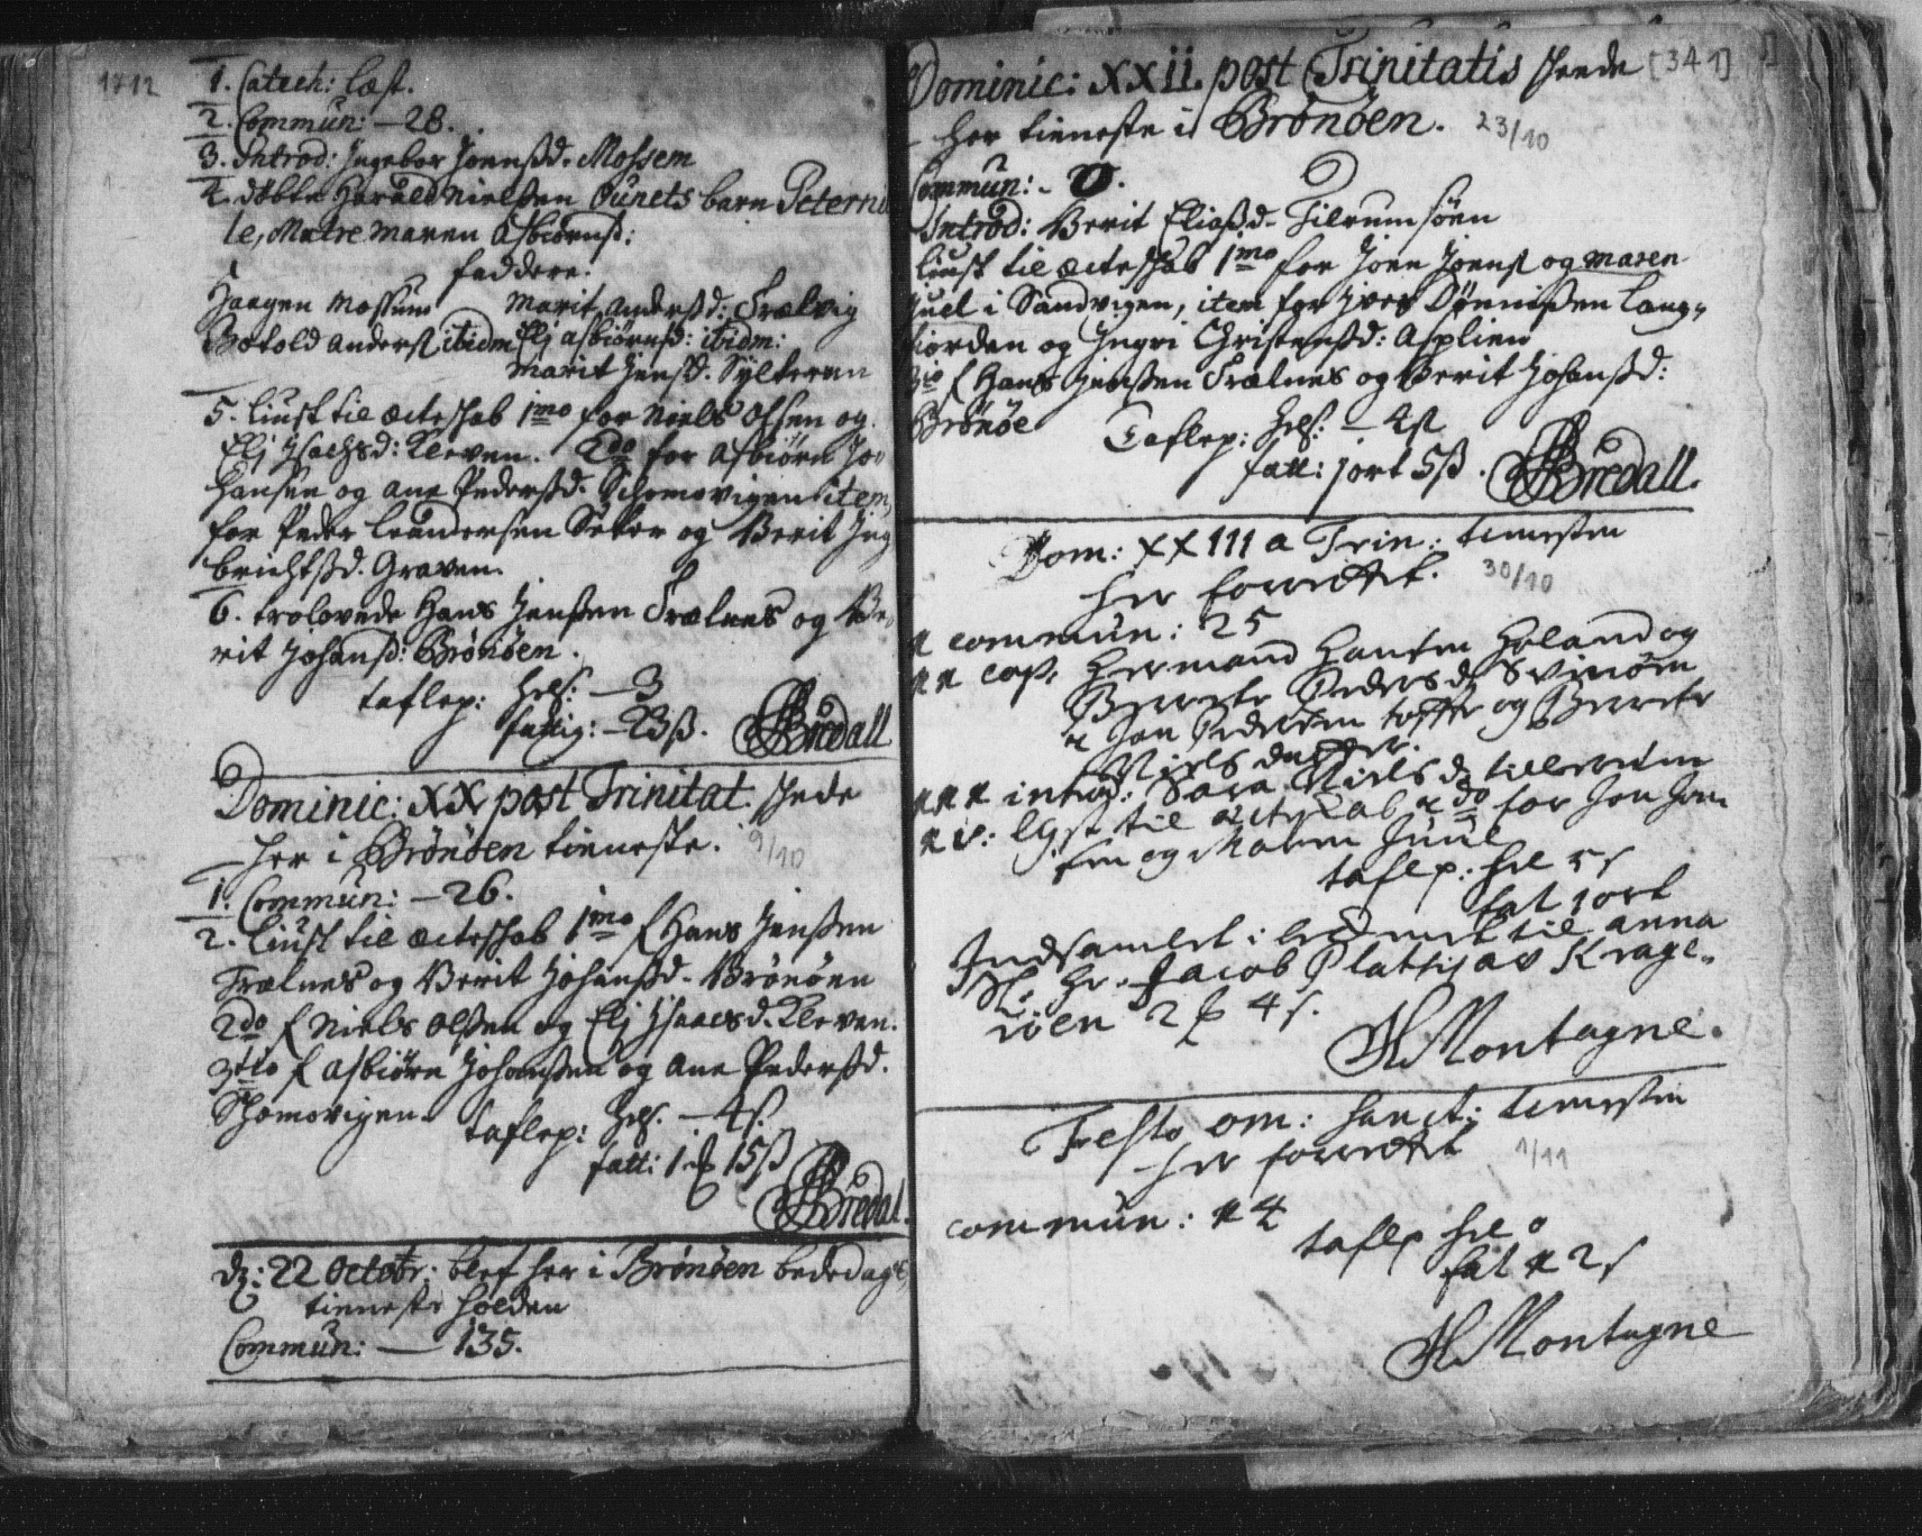 1712
1. Catech: læst.
2. Commun: – 28.
3. Introd: Ingebor Joensd. Mossem
4. døbte Harald Nielsen Ounets barn Peternil
le, Matre Maren Asbiørns:
faddere:
Haagen Mossum Marit Andersd: Trælvig
Botold Anders ibidm Elj Asbiørnsd: ibidm:
Marit Jensd. Sylteren
5. liust til ecteskab 1mo for Niels Olsen og
Elj Isachsd: Kleven. 2do for Asbiørn Jo-
hansen og Ane Pedersd. Skomovigen item
for Peder Leandersen Seter og Berit Ing
brichtsd. Graven.
6. trolovede Hans Jensen Trælnes og Be-
rit Johansd: Brönöen.
taflep: hels: – 3
fattig: – 23ß. Bredall
Dominic: XX post Trinitat. skede
her i Brönöen tieneste. 9/10
1. Commun: – 26.
2. liust til ecteskab 1mo f Hans Jensen
Trælnes og Berit Johansd. Brönöen
2do f Niels Olsen og Elj Isaacsd. Kleven.
3tio f Asbiørn Johansen og Ane Pedersd.
Skomovigen. taflep: hels. – 4ß.
fatt: 1 15ß
Bredal.
d: 22 Octobr: blef her i Brönöen bededags
tieneste holden
Commun: — 135.
Dominic: XXII. post Trinitatis skeede [341]
her tieneste i Brönöen. 23/10
Commun: – 0.
Introd: Berit Eliasd. Tilrumsöen
liust til ecteskab 1mo for Joen Joens og Maren
Juel i Sandvigen, item for Iver Dønnissen Lang-
fiorden og Ingri Christensd: Asplien
3io f Hans Jensen Trælnes og Berit Johansd:
Brönöe Taflep: hels: – 4ß
fatt: 1ort 5ß. Bredall.
Dom: XXIII a Trin: tienesten
her forrettet. 30/10
1 commun: 25
11 cop. Hermand Hansen Holand og
Berete Pedersd Svinöen
Jon Pedersen toffte og Berete
Niels datter.
111 introd: Sara Nielsd tillerumen
1v: lyst til ecteskab 2do for Jon Jon
sen og Maren Juul
taflp: hel 5 s
fat 1 ort
Indsamlet i til anna
Sl. Hr. Jacob Plattsiav Krage-
röen 2 4 s.
H Montagne.
Festo om: sanct: tienesten
her forrettet 1/11
commun: 14
taflp hel 0
fat 12 s
H Montagne